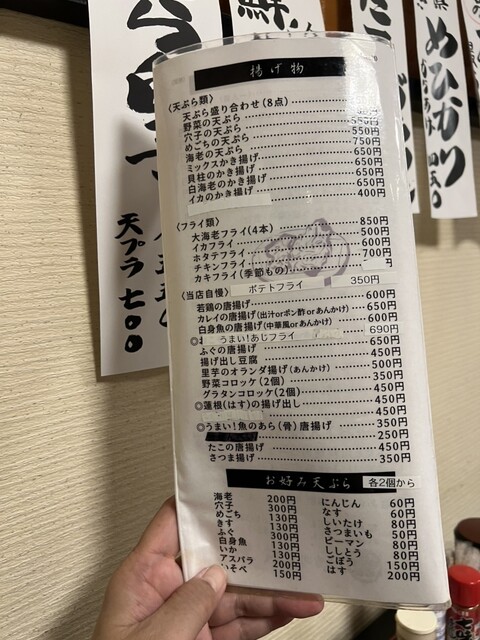 揚げ物
〈天ぷら類〉
天ぷら盛り合わせ(8点)
野菜の天ぷら 550円
穴子の天ぷら 550円
めごちの天ぷら 750円
海老の天ぷら 650円
ミックスかき揚げ 650円
貝柱のかき揚げ 650円
白海老のかき揚げ 650円
イカのかき揚げ 400円
〈フライ類〉
大海老フライ(4本) 850円
イカフライ 500円
ホタテフライ 600円
チキンフライ 700円
カキフライ(季節もの) 円
ポテトフライ 350円
〈当店自慢〉
若鶏の唐揚げ 600円
カレイの唐揚げ(出汁orポン酢orあんかけ) 600円
白身魚の唐揚げ(中華風orあんかけ) 600円
◎ うまい!あじフライ 690円
ふぐの唐揚げ 650円
揚げ出し豆腐 450円
里芋のオランダ揚げ(あんかけ) 500円
野菜コロッケ(2個) 350円
グラタンコロッケ(2個) 450円
◎蓮根(はす)の揚げ出し 450円
450円
◎うまい!魚のあら(骨)唐揚げ 350円
250円
たこの唐揚げ 450円
さつま揚げ 350円
お好み天ぷら 各2個から
海老 200円
穴子 300円
めごち 130円
きす 130円
ふぐ 300円
白身魚 130円
いか 130円
アスパラ 200円
いそべ 150円
にんじん 60円
なす 60円
しいたけ 80円
さつまいも 50円
ピーマン 80円
ししとう 80円
ごぼう 150円
はす 200円
天プラ 七〇〇
めひかり
からあげ 四五〇